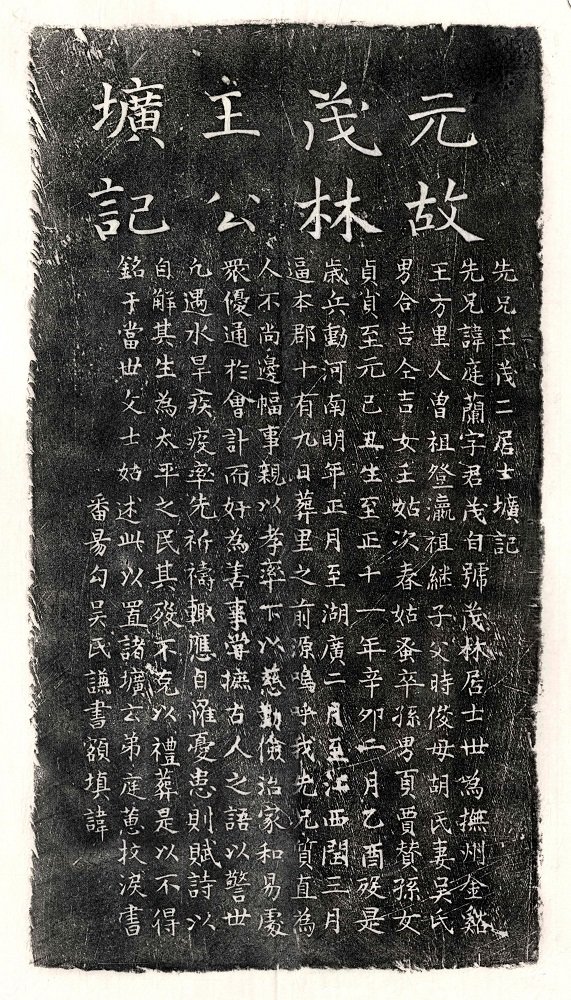 元故
茂林
主公
壙記
先兄王茂二居士壙記
先兄諱庭蘭字君茂自號茂林居士世為撫州金谿
王方里人曾祖登瀛祖継子父時俊母胡氏妻吴氏
男合吉仝吉女壬姑次春姑蚤卒孫男頁賈賛孫女
貞貴至元己丑生至正十一年辛卯二月乙酉歿是
歲兵動河南明年正月至湖廣二月至江西閏三月
逼本郡十有九日葬里之前源嗚呼我先兄質直為
人不尚邊幅事親以孝率下以慈勤儉治家和易處
衆優通扵會計而好為善事嘗摭古人之語以警世
凢遇水旱疾疫率先祈禱輙應自罹憂患則賦詩以
自解其生為太平之民其歿不克以禮葬是以不得
銘于當世文士姑述此以置諸壙云弟庭蕙抆淚書
番昜勾吴民謙書額填諱